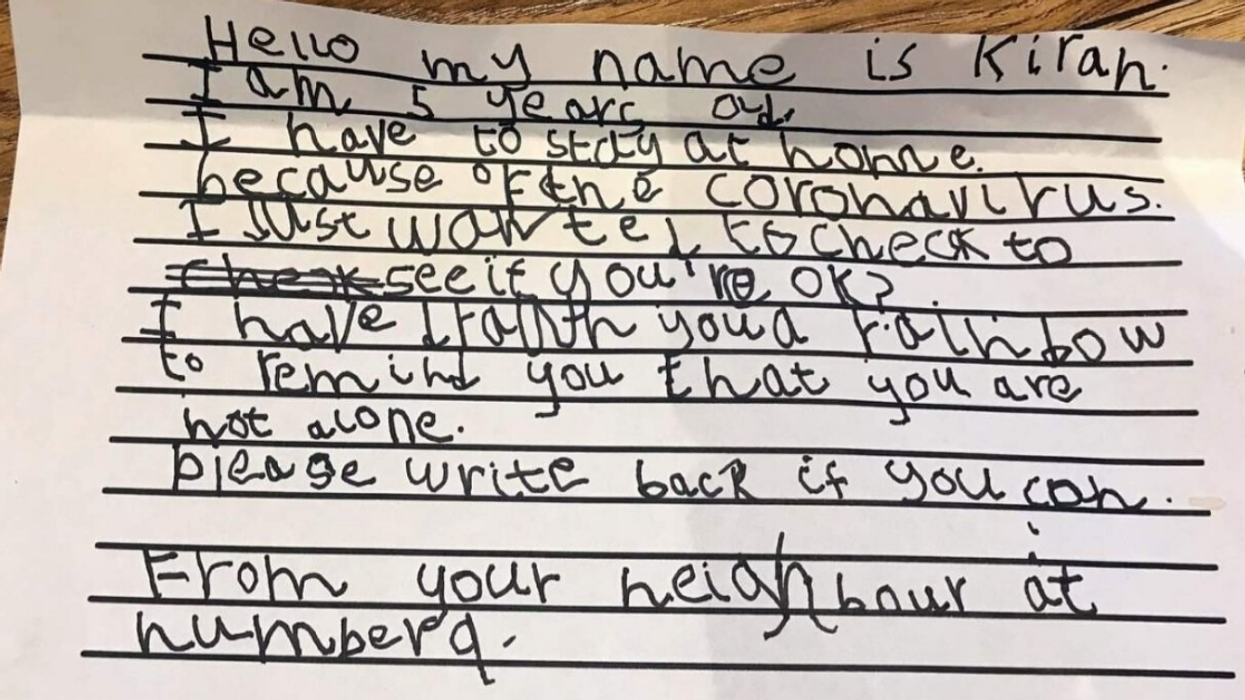 Hello my name is Kiran.
I am 5 years old.
I have to stay at home.
because of the coronavirus.
I Just wanted to check to
see if you're ok?
I have drawn you a rainbow
to remind you that you are
not alone.
please write back if you can.
From your neighbour at
number 9.